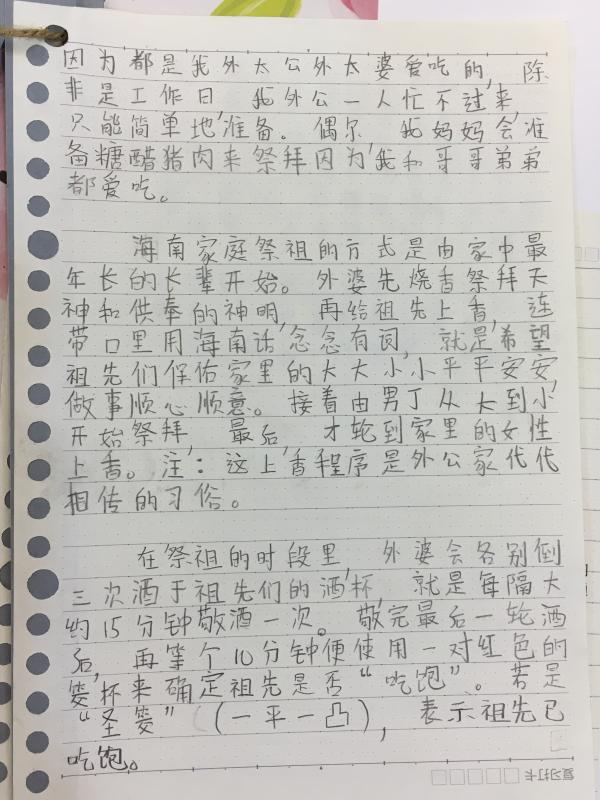 因为都是我外太公外太婆爱吃的，除
非是工作日，我外公一人忙不过来，
只能简单地准备。偶尔，我妈妈会准
备糖醋猪肉来祭拜因为我和哥哥弟弟
都爱吃。
海南家庭祭祖的方式是由家中最
年长的长辈开始。外婆先烧香祭拜天
神和供奉的神明，再给祖先上香，连
带口里用海南话念念有词，就是希望
祖先们保佑家里的大大小小平平安安，
做事顺心顺意。接着由男丁从大到小
开始祭拜，最后，才轮到家里的女性
上香。注：这上香程序是外公家代代
相传的习俗。
在祭祖的时段里，外婆会各别倒
三次酒于祖先们的酒杯，就是每隔大
约15分钟敬酒一次。敬完最后一轮酒
后，再等个10分钟便使用一对红色的
筊杯来确定祖先是否“吃饱”。若是
“圣筊”（一平一凸），表示祖先已
吃饱。
复习打卡